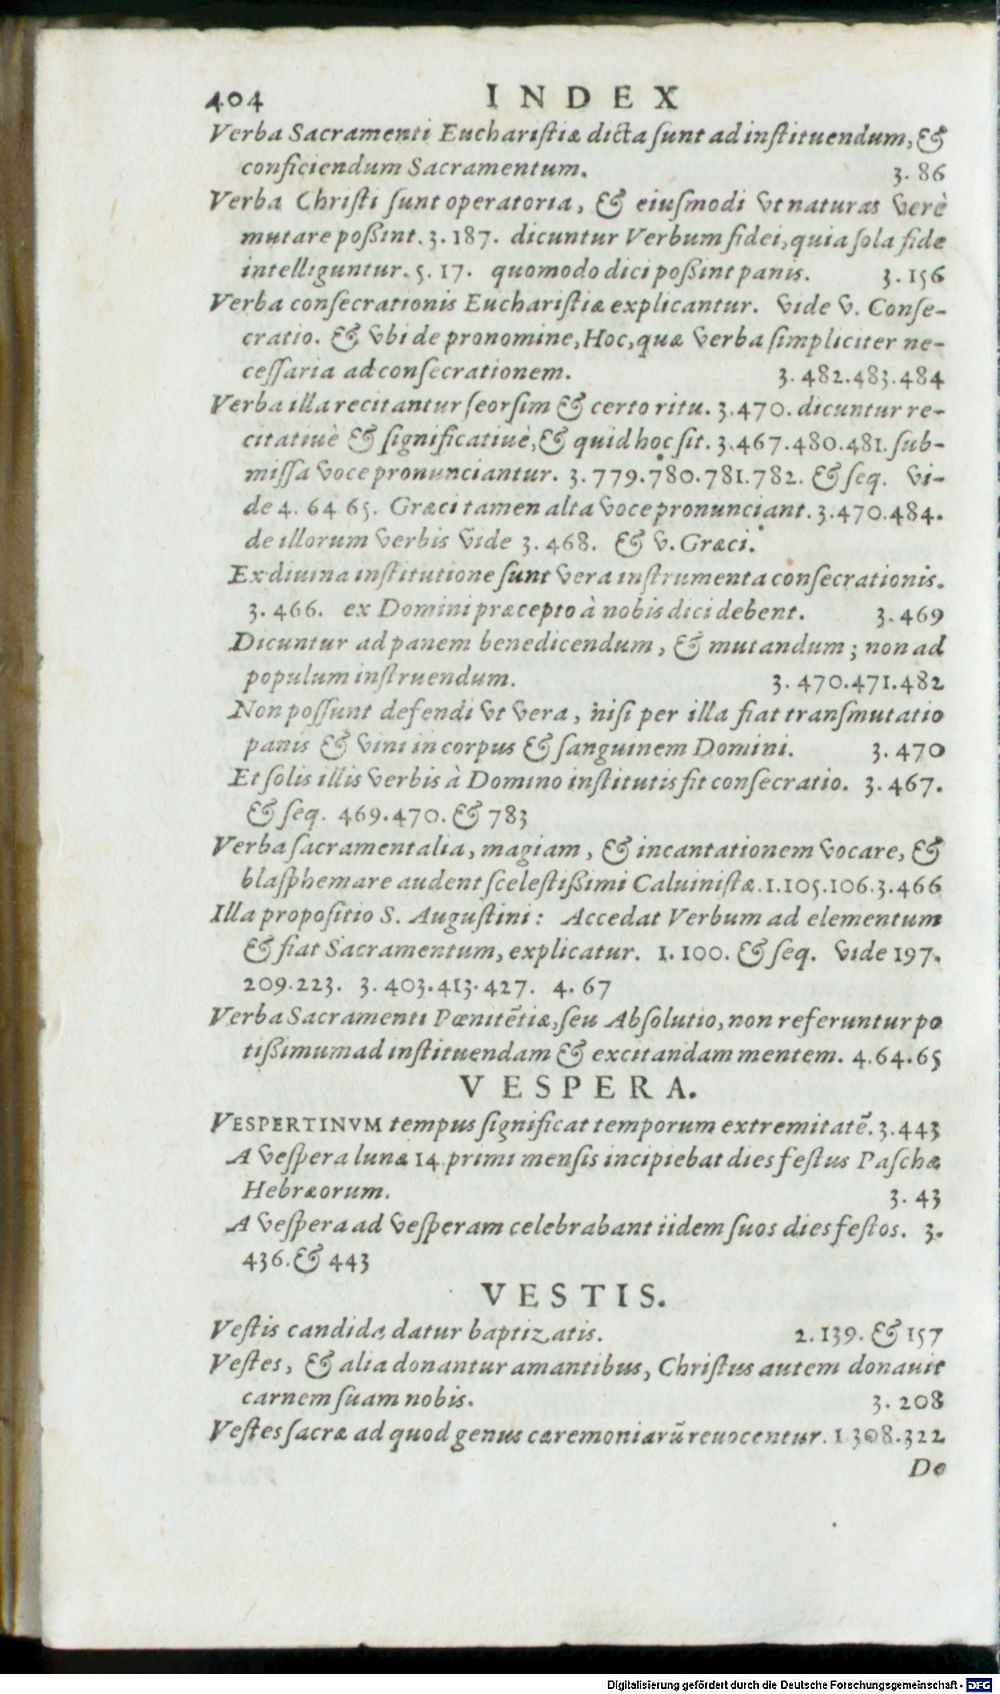 404 INDEX
Verba Sacramenti Euchariſtiæ dicta ſunt ad inſtituendum, &
conficiendum Sacramentum. 3. 86
Verba Chriſti ſunt operatoria, & eiuſmodi vt naturas verè
mutare poßint. 3. 187. dicuntur Verbum fidei, quia ſola fide
intelliguntur. 5. 17. quomodo dici poßint panis. 3. 156
Verba conſecrationis Euchariſtiæ explicantur. vide v. Conſe-
cratio. & vbi de pronomine, Hoc, quæ verba ſimpliciter ne-
ceſſaria ad conſecrationem. 3. 482. 483. 484
Verba illa recitantur ſeorſim & certo ritu. 3. 470. dicuntur re-
citatiuè & ſignificatiuè, & quid hoc ſit. 3. 467. 480. 481. ſub-
miſſa voce pronunciantur. 3. 779. 780. 781. 782. & ſeq. vi-
de 4. 64 65. Græci tamen alta voce pronunciant. 3. 470. 484.
de illorum verbis vide 3. 468. & v. Græci.
Ex diuina inſtitutione ſunt vera inſtrumenta conſecrationis.
3. 466. ex Domini præcepto à nobis dici debent. 3. 469
Dicuntur ad panem benedicendum, & mutandum; non ad
populum inſtruendum. 3. 470. 471. 482
Non poſſunt defendi vt vera, niſi per illa fiat tranſmutatio
panis & vini in corpus & ſanguinem Domini. 3. 470
Et ſolis illis verbis à Domino inſtitutis fit conſecratio. 3. 467.
& ſeq. 469. 470. & 783
Verba ſacramentalia, magiam, & incantationem vocare, &
blaſphemare audent ſceleſtißimi Caluiniſtæ. 1. 105. 106. 3. 466
Illa propoſitio S. Auguſtini: Accedat Verbum ad elementum
& fiat Sacramentum, explicatur. 1. 100. & ſeq. vide 197.
209. 223. 3. 403. 413. 427. 4. 67
Verba Sacramenti Pœnitẽtiæ, ſeu Abſolutio, non referuntur po
tißimum ad inſtituendam & excitandam mentem. 4. 64. 65
VESPERA.
VESPERTINVM tempus ſignificat temporum extremitatẽ. 3. 443
A veſpera lunæ 14 primi menſis incipiebat dies feſtus Paſchæ
Hebræorum. 3. 43
A veſpera ad veſperam celebrabant iidem ſuos dies feſtos. 3.
436. & 443
VESTIS.
Veſtis candida datur baptizatis. 2. 139. & 157
Veſtes, & alia donantur amantibus, Chriſtus autem donauit
carnem ſuam nobis. 3. 208
Veſtes ſacræ ad quod genus cæremoniarũ reuocentur. 1 308. 322
De
Digitalisierung gefördert durch die Deutsche Forschungsgemeinschaft - DFG